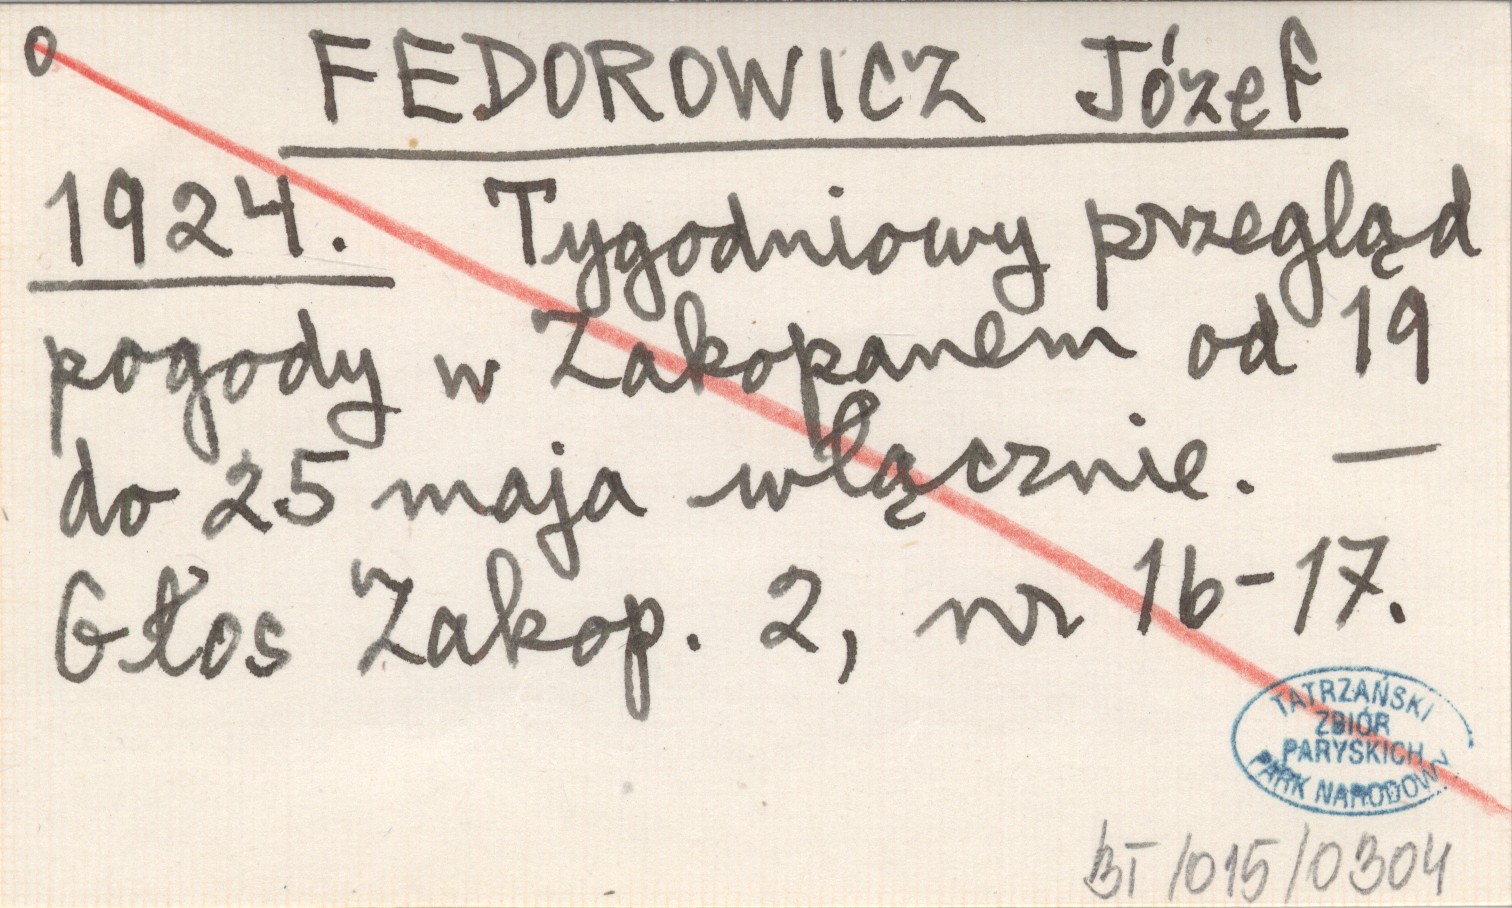 0
FEDOROWICZ Józef
1924. Tygodniowy przegląd
pogody w Zakopanem od 19
do 25 maja włącznie. —
Głos Zakop. 2, nr 16-17.
TATRZAŃSKI
ZBIÓR
PARYSKICH
PARK NARODOWY
BT/015/0304